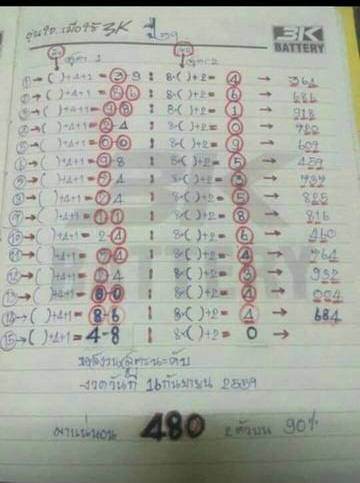 อุ่นใจ..เมื่อใช้ 3K ปี 59
3K
BATTERY
สูตร 1 สูตร 2
①→( )+4+1 = 3-9 : 8-( )+2= 4 → 361
②→( )+4+1 = 8-6 : 8-( )+2= 6 → 686
③→( )+4+1 = 9-8 : 8-( )+2= 1 → 918
④→( )+4+1 = 2-4 : 8-( )+2= 0 → 720
⑤→( )+4+1 = 0-0 : 8-( )+2= 9 → 607
→( )+4+1 = 9 8 : 8-( )+2= 5 → 459
→( )+4+1 = 7 4 : 8-( )+2= 3 → 737
→( )+4+1 = 7 4 : 8-( )+2= 5 → 825
→( )+4+1 = 1 1 : 8-( )+2= 8 → 816
⑩→( )+4+1 = 2-4 : 8-( )+2= 6 → 460
⑪→( )+4+1 = 7 4 : 8-( )+2= 4 → 764
⑫→( )+4+1 = 2 4 : 8-( )+2= 3 → 932
⑬→( )+4+1 = 8-0 : 8-( )+2= 4 → 004
⑭→( )+4+1 = 8-6 : 8-( )+2= 4 → 684
⑮→( )+4+1 = 4-8 : 8-( )+2= 0 →
งวดวันที่ 16 กันยายน 2559
480 2 ตัวบน 90%